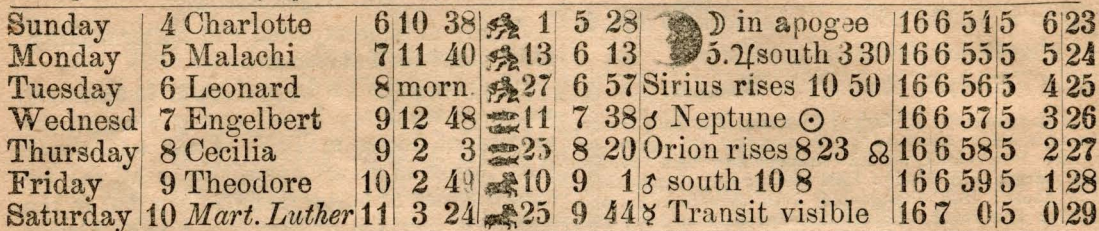 Sunday 4 Charlotte 6 10 38 1 5 28 ☽ in apogee 16 6 54 5 6 23
Monday 5 Malachi 7 11 40 13 6 13 5. ♃ south 3 30 16 6 55 5 5 24
Tuesday 6 Leonard 8 morn. 27 6 57 Sirius rises 10 50 16 6 56 5 4 25
Wednesd 7 Engelbert 9 12 48 11 7 38 ☌ Neptune ☉ 16 6 57 5 3 26
Thursday 8 Cecilia 9 2 3 25 8 20 Orion rises 8 23 ☊ 16 6 58 5 2 27
Friday 9 Theodore 10 2 49 10 9 1 ♂ south 10 8 16 6 59 5 1 28
Saturday 10 Mart. Luther 11 3 24 25 9 44 ☿ Transit visible 16 7 0 5 0 29